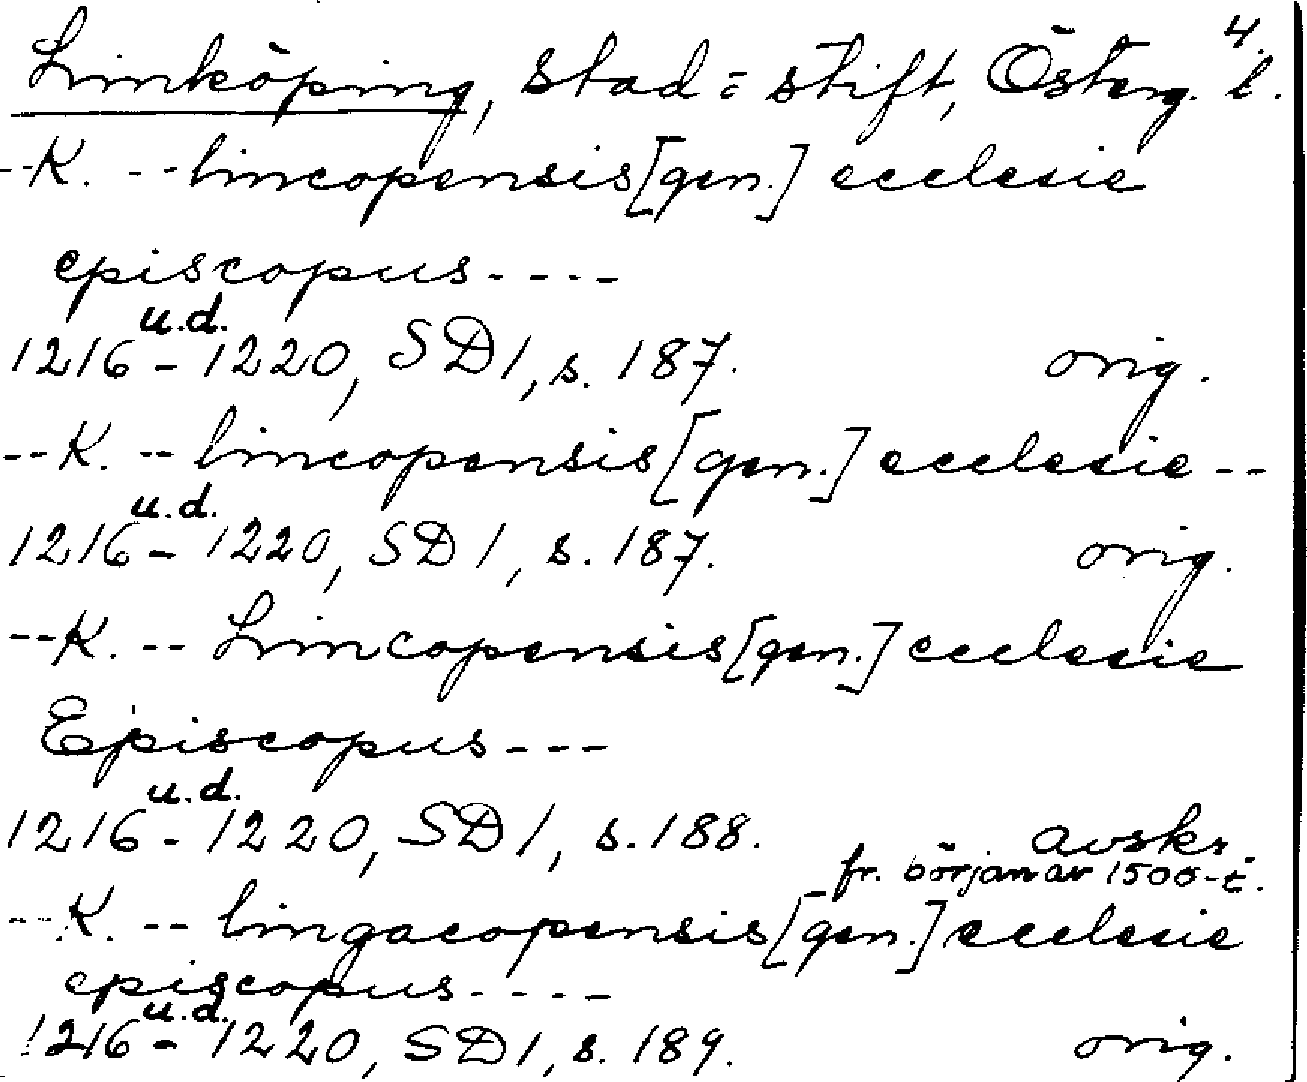 4.
Linköping, stad = stift, Österg. l.
--K. --lincopensis [gen.] ecclesie
episcopus----
u.d.
1216 - 1220, SD1, s. 187. orig.
--K. --lincopensis [gen.] ecclesie--
u.d.
1216 - 1220, SD1, s. 187. orig.
--K. -- Lincopensis [gen.] ecclesie
Episcopus---
u.d.
1216 - 1220, SD1, s. 188. avskr.
fr. början av 1500-t.
--K. -- lingacopensis [gen.] ecclesie
episcopus----
u.d.
1216 - 1220, SD1, s. 189. orig.